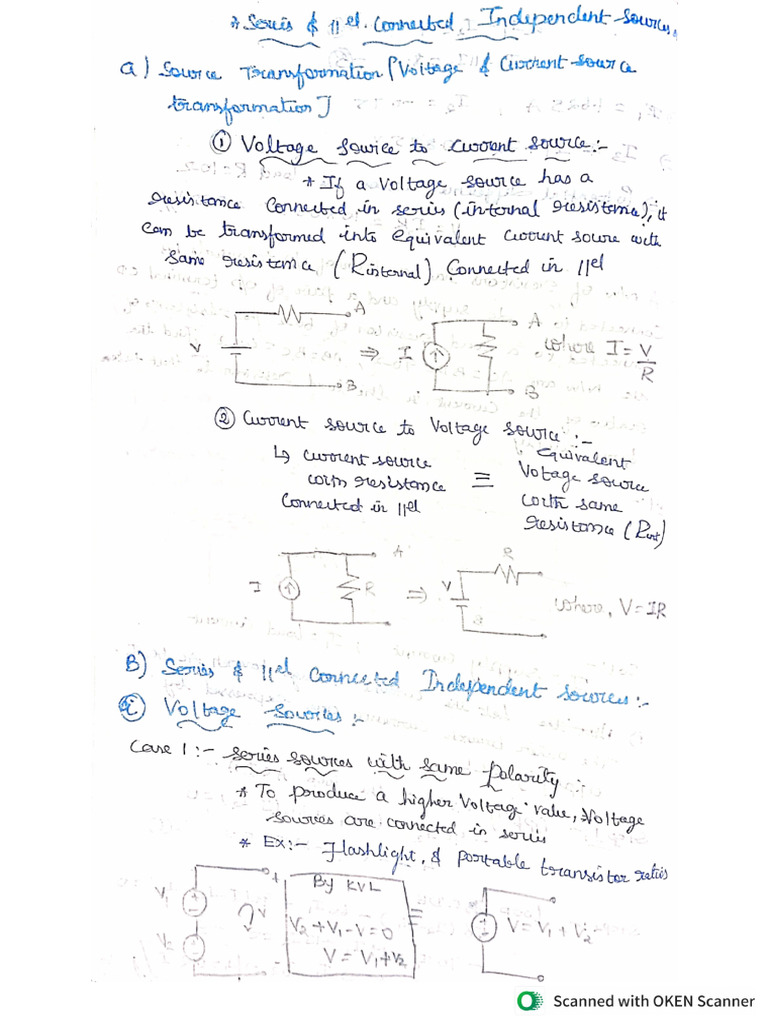 * Series & 11el. Connected, Independent Sources.
a) Source Transformation [Voltage & Current Source
transformation]
① Voltage Source to current source:-
* If a Voltage source has a
resistance connected in series (internal resistance), it
can be transformed into equivalent current source with
same resistance (Rinternal) Connected in 11el
A
V
B
⇒ I
A
B
where I = V/R
② Current source to Voltage source:-
↳ current source
with resistance
Connected in 11el
≡
Equivalent
Votage source
with same
resistance (Rint)
I
A
R
⇒
V
R
B
where, V=IR
B) Series & 11el Connected Independent sources:-
① Voltage Sources:-
Case 1:- series sources with same polarity:
* To produce a higher Voltage value, Voltage
sources are connected in series
* Ex:- Flashlight, & portable transistor
V1
V2
+
V
-
By KVL
V2+V1-V=0
V=V1+V2
≡
V=V1+V2
Scanned with OKEN Scanner